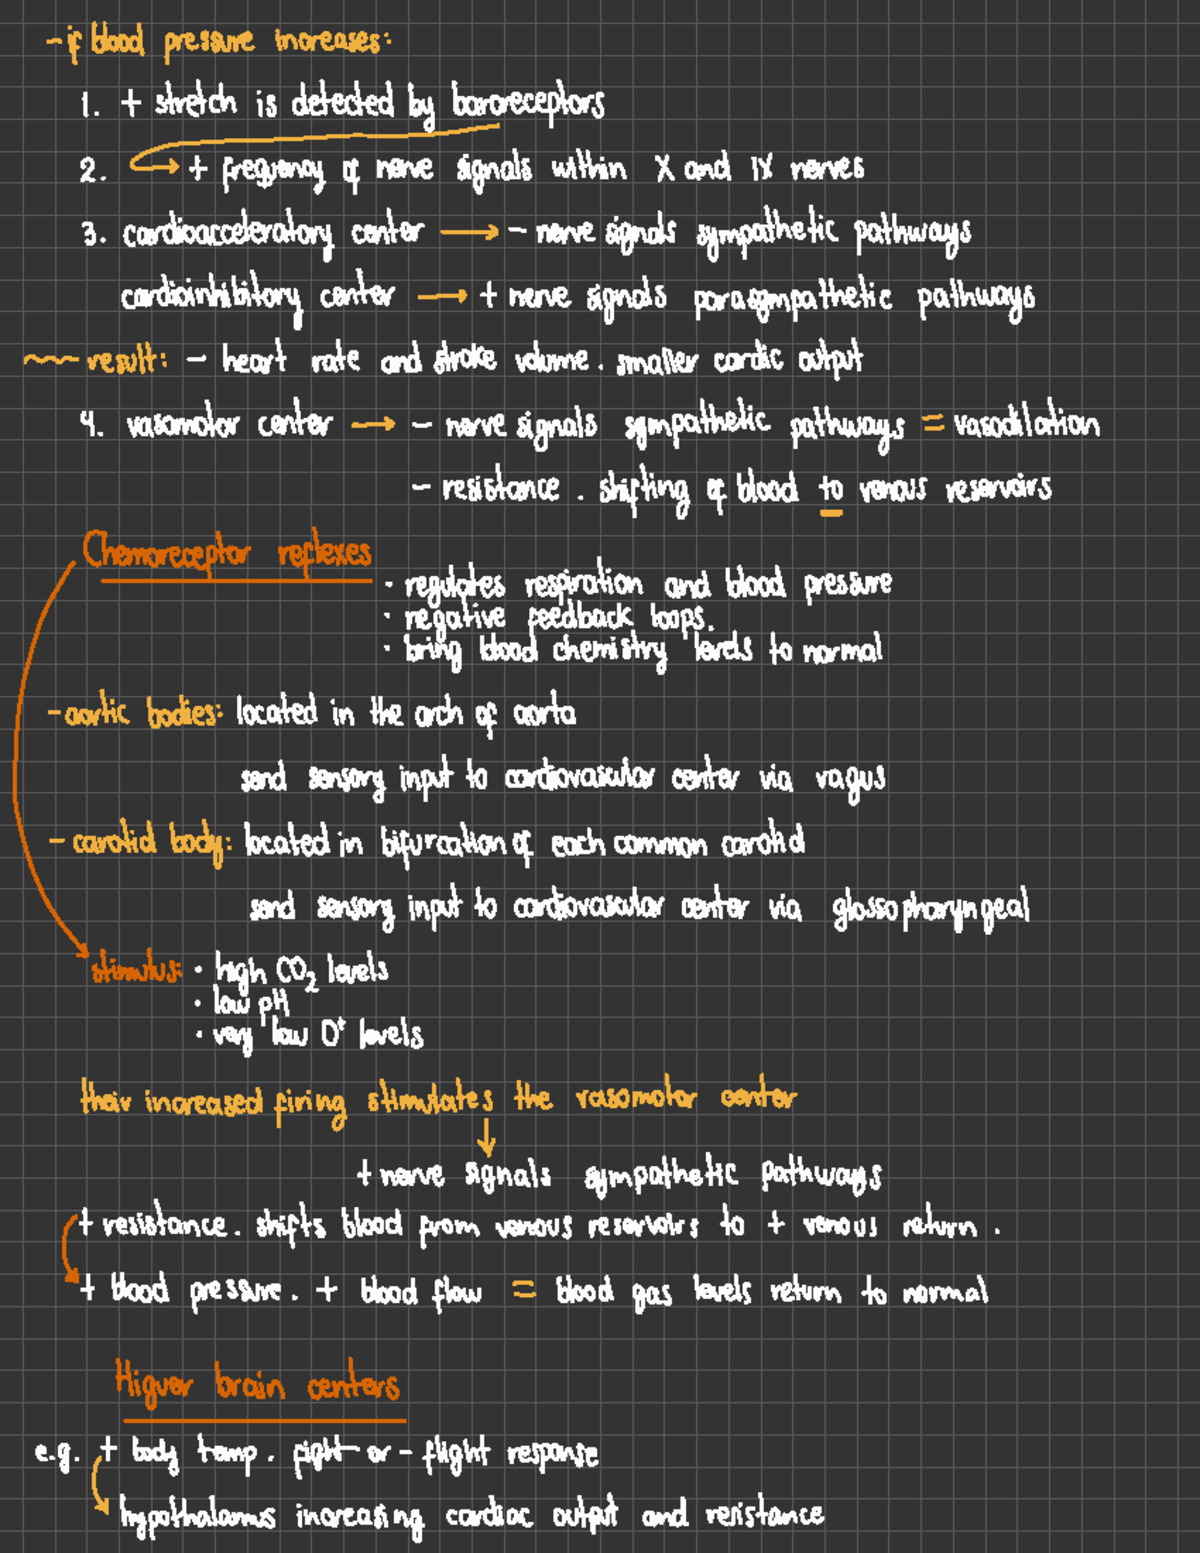 - if blood pressure increases:
1. + stretch is detected by baroreceptors
2. → + frequency of nerve signals within X and IX nerves
3. cardioacceleratory center → - nerve signals sympathetic pathways
cardioinhibitory center → + nerve signals parasympathetic pathways
result: - heart rate and stroke volume. smaller cardic output
4. vasomotor center → - nerve signals sympathetic pathways = vasodilation
- resistance. shifting of blood to venous reservoirs
Chemoreceptor reflexes
· regulates respiration and blood pressure
· negative feedback loops.
· bring blood chemistry levels to normal
- aortic bodies: located in the arch of aorta
send sensory input to cardiovascular center via vagus
- carotid body: located in bifurcation of each common carotid
send sensory input to cardiovascular center via glossopharyngeal
stimulus: · high CO₂ levels
· low pH
· very low O⁺ levels
their increased firing stimulates the vasomotor center
↓
+ nerve signals sympathetic pathways
+ resistance. shifts blood from venous reservoirs to + venous return.
+ blood pressure. + blood flow = blood gas levels return to normal
Higuer brain centers
e.g. + body temp. fight - or - flight response
hypothalamus increasing cardiac output and resistance